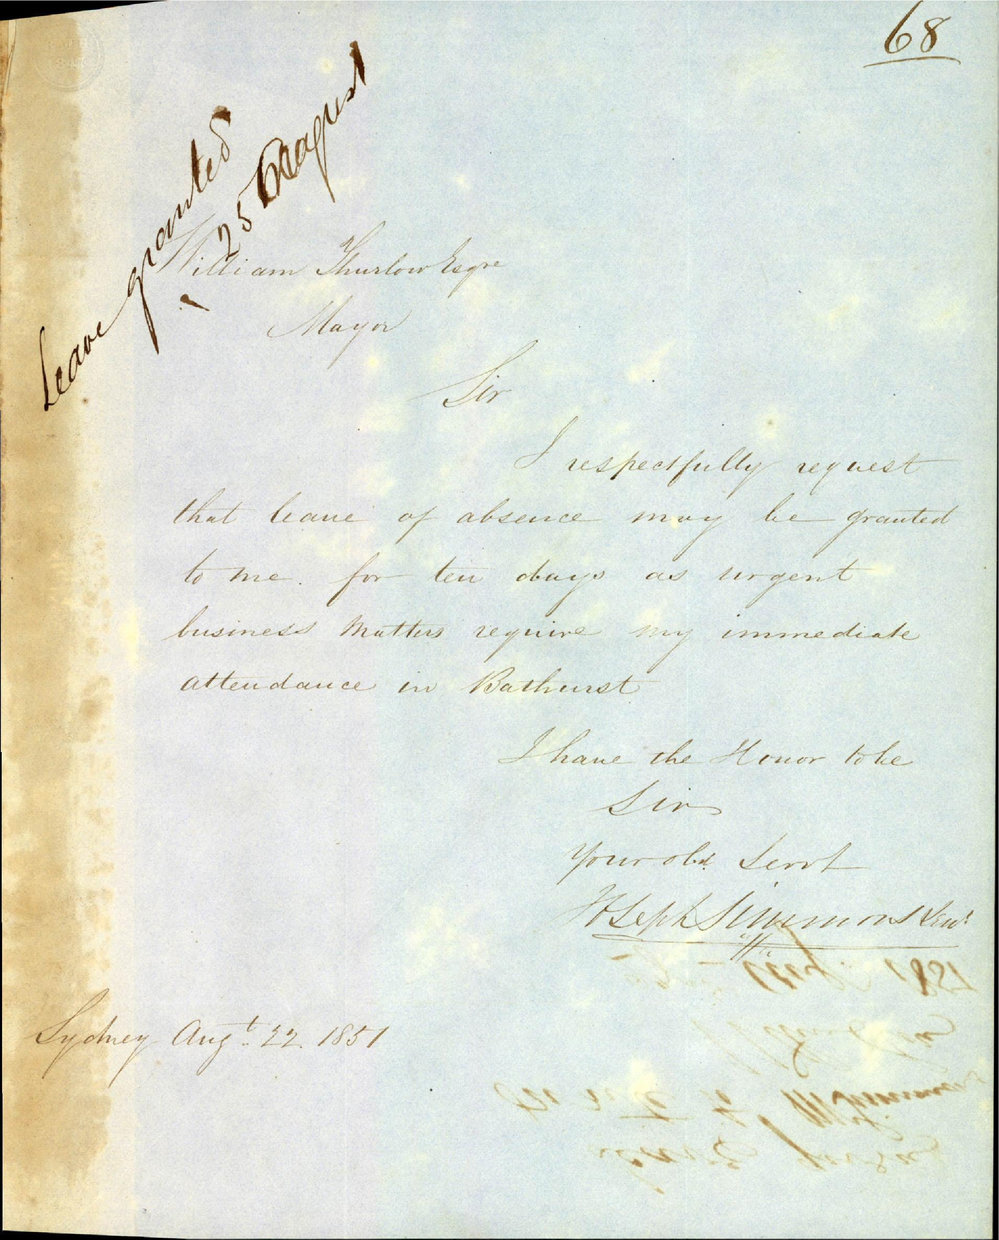 68
Leave granted
25 August
William Thurlow Esqre
Mayor
Sir
I respectfully request
that leave of absence may be granted
to me. for ten days as urgent
business Matters require my immediate
attendance in Bathurst
I have the Honor to be
Sir
Your obd. Servt
Joseph Simmons Senr
Sydney Augt. 22. 1851